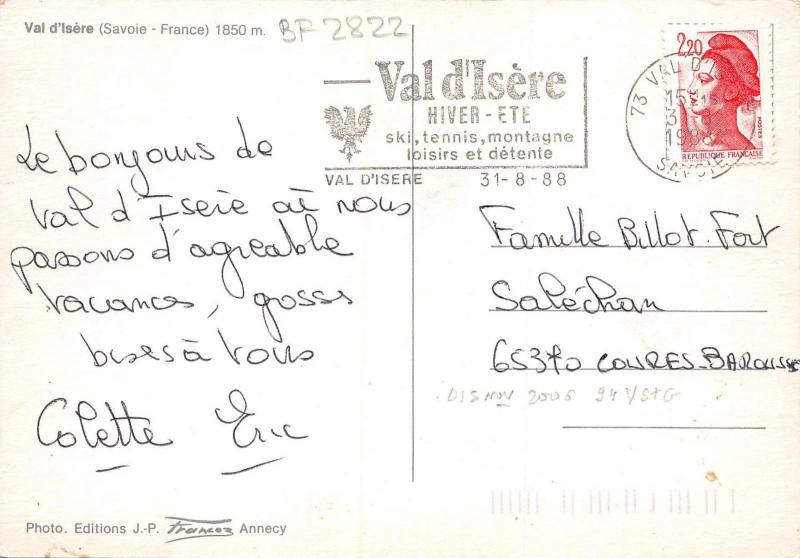 Val d'Isère (Savoie - France) 1850 m.
BF 2822
Val d'Isère
HIVER - ETE
ski, tennis, montagne
loisirs et détente
VAL D'ISERE 31-8-88
73 VAL D'I
15H
31-8
1988
SAVOIE
2,20
POSTES
REPUBLIQUE FRANÇAISE
Le bonjours de
Val d'Isere où nous
passons d'agreable
vacances, grosses
bises à vous
Colette Eric
Famille Billot. Fort
Saléchan
65370 LOURES-BAROUSSE
2006
Photo. Editions J.-P. Francoz Annecy